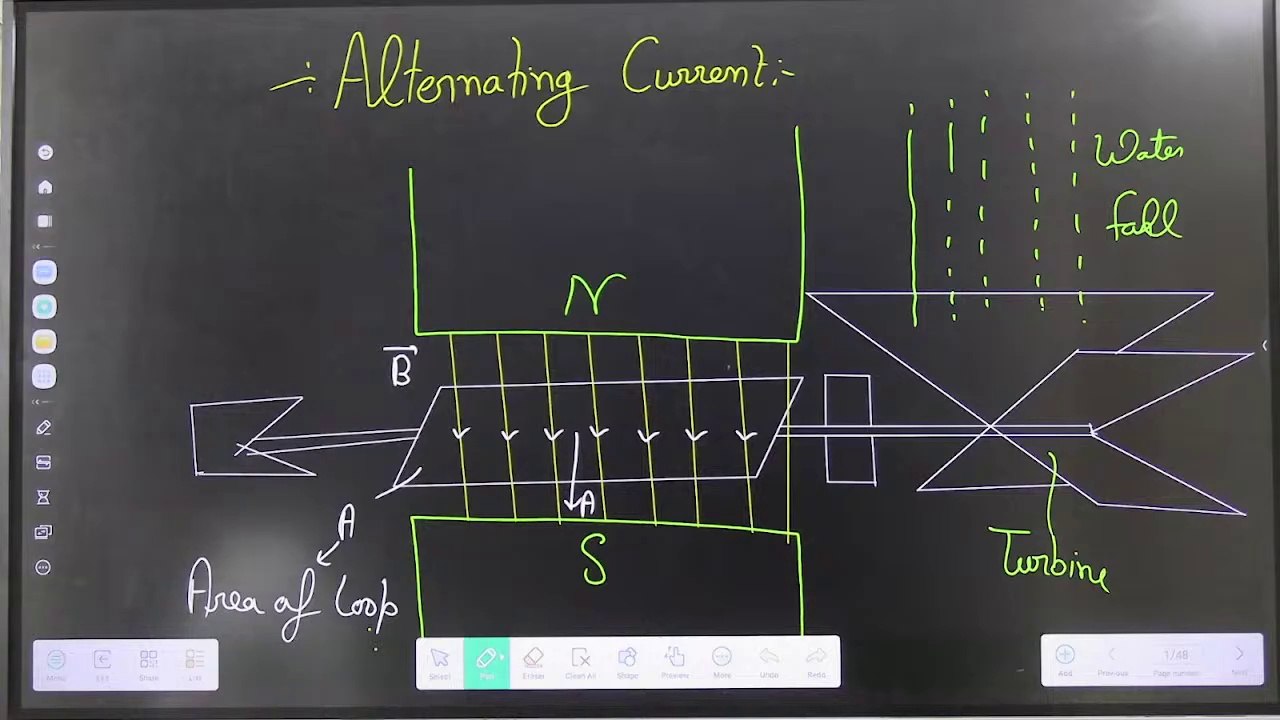 -: Alternating Current:-
Water
fall
N
B
A
S
A
Area of loop
Turbine
Menu
Exit
Share
Select
Pen
Eraser
Clean All
Shape
Preview
More
Undo
Redo
Add
Previous
1/48
Page number
Next